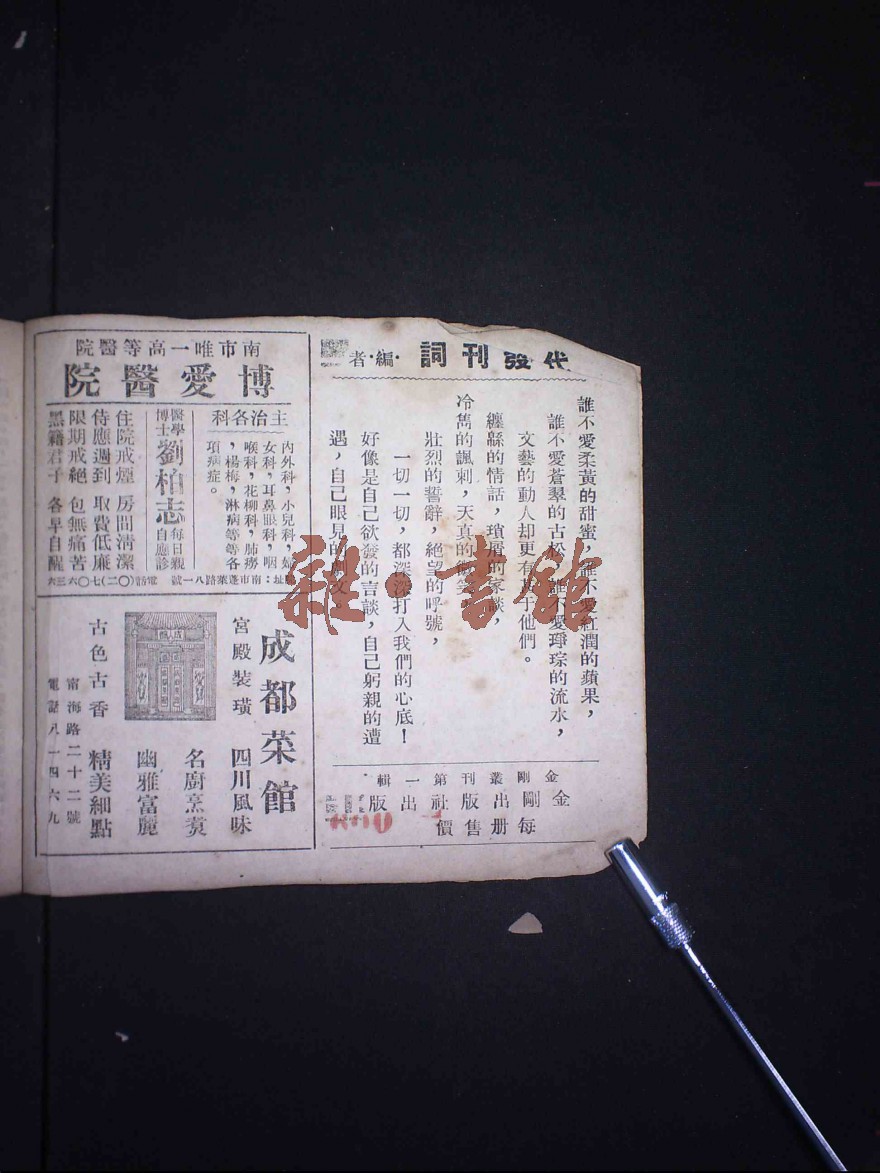 代發刊詞 ·編·者
誰不愛柔黃的甜蜜，誰不愛紅潤的蘋果，
誰不愛蒼翠的古松，誰不愛琤琮的流水，
文藝的動人却更有甚于他們。
纏緜的情話，瑣屑的家談，
冷雋的諷刺，天真的微笑，
壯烈的誓辭，絕望的呼號，
一切一切，都深深打入我們的心底！
好像是自己欲發的言談，自己躬親的遭
遇，自己眼見的
金剛叢刊第一輯
金剛出版社出版
每册售價
南市唯一高等醫院
博愛醫院
主治各科
內外科，小兒科，婦
女科，耳鼻眼科，咽
喉科，花柳科，肺癆
，楊梅，淋病等等各
項病症。
醫學博士 劉柏志 每日親自應診
住院戒煙 房間清潔
侍應週到 取費低廉
限期戒絕 包無痛苦
黑籍君子 各早自醒
址：南市蓬萊路八一號 電話（〇二）七〇六三六
成都菜館
宮殿裝璜 四川風味
名廚烹煑
幽雅富麗
古色古香 精美細點
南海路二十二號
電話八一四六九
雜·書館